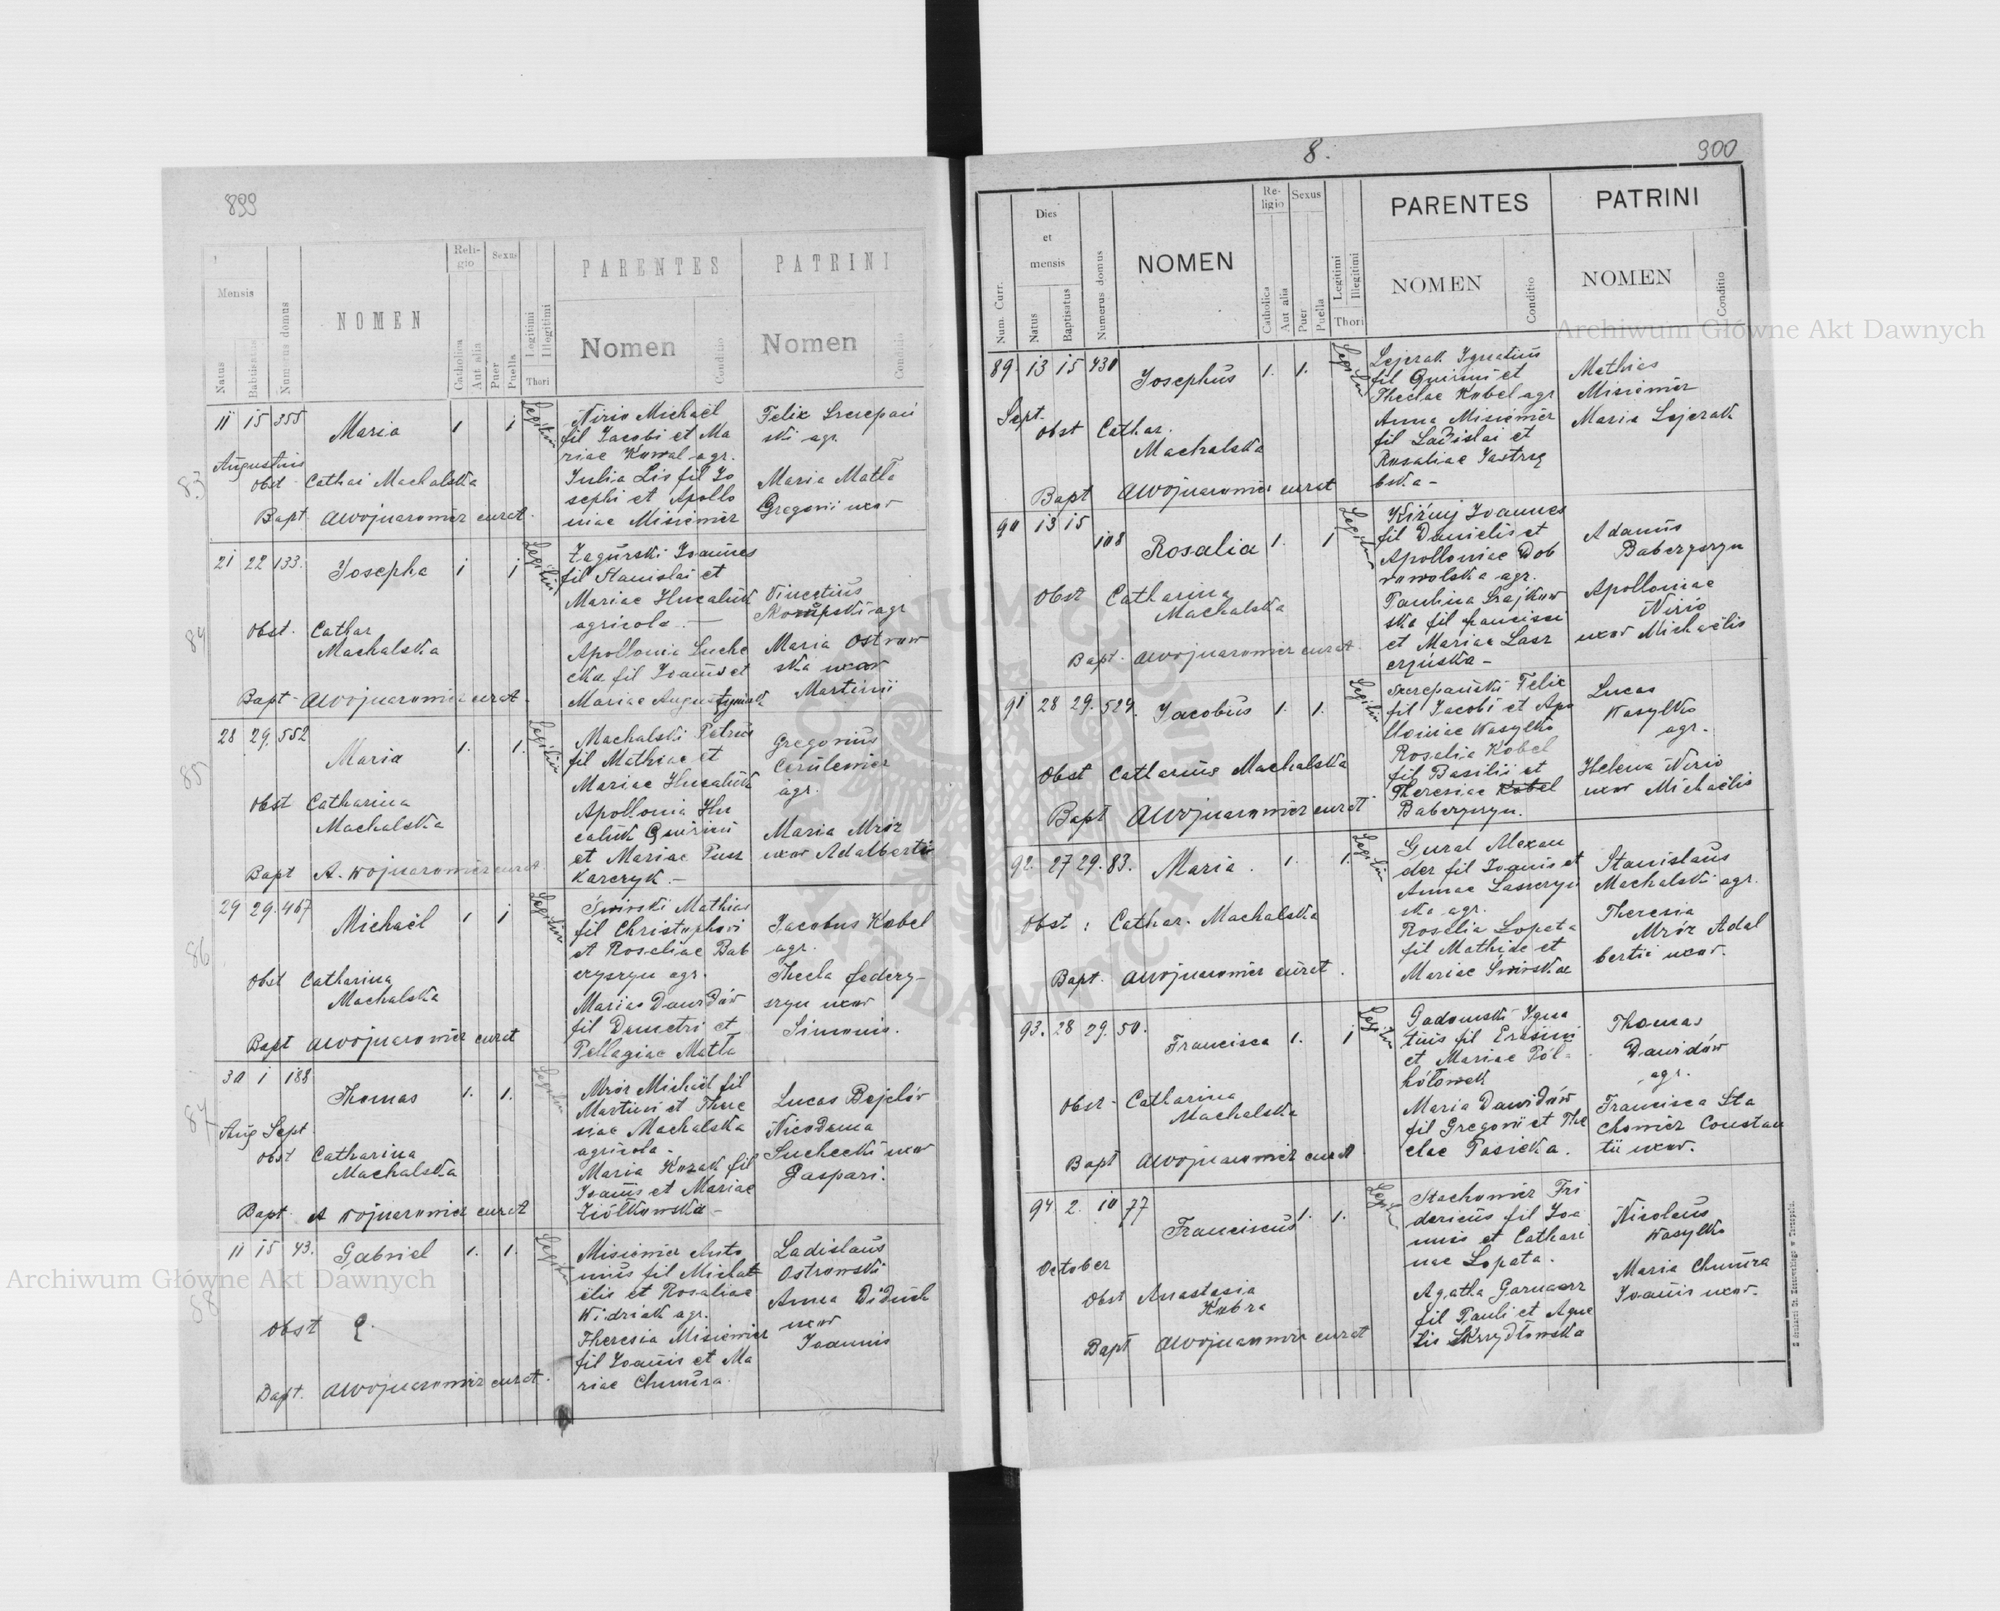 899
Mensis
Natus
Babtisatus
Numerus domus
NOMEN
Religio
Catholica
Aut alia
Sexus
Puer
Puella
Legitimi
Illegitimi
Thori
PARENTES
Nomen
Conditio
PATRINI
Nomen
Conditio
83
11 15 355
Maria
1 1
Augustus
Obst Cathar Machalska
Bapt AWojnarowicz curat.
Nirio Michaël
fil Jacobi et Ma
riae Kowal agr.
Julia Lis fil Jo
sephi et Apollo
niae Misiewicz
Felix Szczepań
ski agr.
Maria Matła
Gregorii uxor
84
21 22 133.
Josepha
1 1
Obst. Cathar
Machalska
Bapt - AWojnarowicz curat.
Zagurski Joannes
fil Stanislai et
Mariae Hucaluk
agricola. —
Apollonia Suche
cka fil Joannis et
Mariae Augustyniak
Vincetius
agr
Maria Ostrow
ska uxor
Martinii
85
28 29. 552
Maria
1. 1.
Obst Catharina
Machalska
Bapt A. Wojnarowicz curat
Machalski Petrus
fil Mathiae et
Mariae Hucaluk
Apollonia Hu
caluk Quirini
et Mariae Pusz
karczyk. —
Gregorius
Cerulewicz
agr.
Maria Mróz
uxor Adalberti
86
29 29. 467
Michaël
1 1
Obst Catharina
Machalska
Bapt AWojnarowicz curat
Świrski Mathias
fil Christophori
et Rosaliae Bab
czyszyn agr.
Maria Dawidów
fil Demetri et
Pellagiae Matła
Jacobus Kobel
agr.
Thecla Federy-
szyn uxor
Simonis.
87
30 1 188
Thomas
1. 1.
Aug Sept
Obst Catharina
Machalska
Bapt. A Wojnarowicz curat
Mróz Michaël fil
Martini et There
siae Machalska
agricola.
Maria Kozak fil
Joannis et Mariae
Ziółkowska —
Lucas Bejclór
Nicodema
Suchecki uxor
Gaspari.
88
11 15 43.
Gabriel
1. 1.
Obst
Bapt. AWojnarowicz curat.
Misiewicz Anto
nius fil Micha
ëlis et Rosaliae
Widriak agr.
Theresia Misiewicz
fil Joannis et Ma
riae Chmura.
Ladislaus
Ostrowski
Anna Diduch
uxor
Joannis
8.
900
Num. Curr.
Dies
et
mensis
Natus
Baptisatus
Numerus domus
NOMEN
Religio
Catholica
Aut alia
Sexus
Puer
Puella
Legitimi
Illegitimi
Thori
PARENTES
NOMEN
Conditio
PATRINI
NOMEN
Conditio
89 13 15 430
Josephus
1. 1.
Sept.
Obst Cathar.
Machalska
Bapt AWojnarowicz curat
Lejczak Ignatius
fil Quirini et
Theclae Kobel agr
Anna Misiewicz
fil Ladislai et
Rosaliae Jastrzę
bska -
Mathias
Misiewicz
Maria Lejczak
90 13 15
108
Rosalia
1. 1
Obst Catharina
Machalska
Bapt - AWojnarowicz curat
Joannes
fil Danielis et
Apolloniae Dob
rowolska agr.
Paulina Szajkow
ska fil Francisci
et Mariae Lasz
czyńska -
Adamus
Babczyszyn
Apolloniae
Nirio
uxor Michaëlis
91 28 29. 529.
Jacobus
1. 1.
Obst Catharina Machalska
Bapt AWojnarowicz curat
Szczepański Felix
fil Jacobi et Apo
lloniae Wasylko
Rosalia Kobel
fil Basilii et
Theresiae Kobel
Babczyszyn.
Lucas
Wasylko
agr.
Helena Nirio
uxor Michaëlis
92. 27 29. 83.
Maria.
1. 1.
Obst: Cathar. Machalska
Bapt. AWojnarowicz curat.
Gural Alexan
der fil Joannis et
Annae Laszczyń
ska agr.
Rosalia Lopata
fil Mathiae et
Mariae Świrskae
Stanislaus
Machalski agr.
Theresia
Mróz Adal
bertia uxor.
93. 28 29. 50.
Francisca
1. 1
Obst - Catharina
Machalska
Bapt AWojnarowicz curat
Gadomski Igna
tius fil Erasmi
et Mariae Pół-
hołowek
Maria Dawidów
fil Gregorii et The
clae Pasieka.
Thomas
Dawidów
agr.
Francisca Sta
chowicz Constan
tii uxor.
94 2. 10 77
Franciscus
1. 1.
October
Obst Anastasia
Kobza
Bapt AWojnarowicz curat
Stachowicz Fri
dericus fil Joa
nnis et Cathari
nae Lopata.
Agatha Garncarz
fil Pauli et Agne
tis Skrzydłowska
Nicolaus
Wasylko
Maria Chmura
Joannis uxor.
Archiwum Główne Akt Dawnych
Archiwum Główne Akt Dawnych